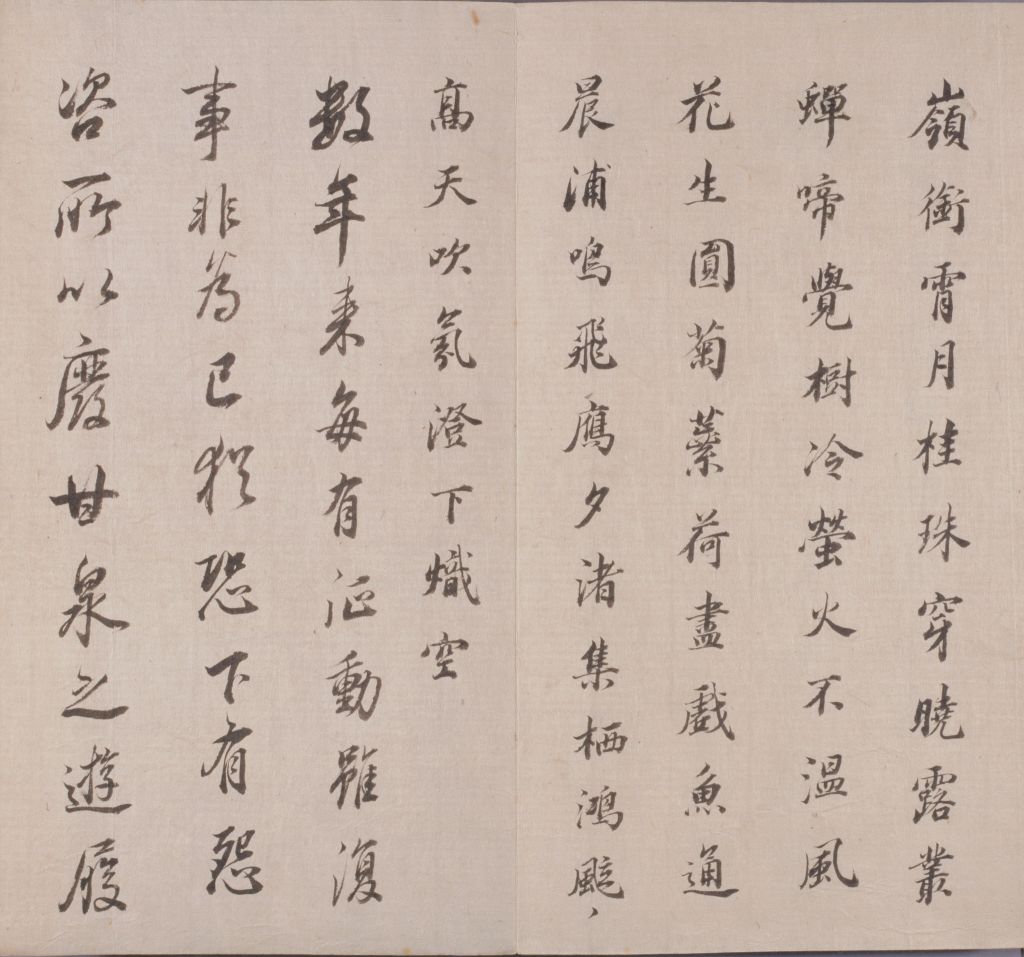 嶺銜霄月桂珠穿曉露叢
蟬啼覺樹冷螢火不溫風
花生圓菊蘂荷盡戲魚通
晨浦鳴飛鴈夕渚集栖鴻颯〻
高天吹氛澄下熾空
數年来每有征動雖復
事非為己猶恐下有怨
咨所以廢甘泉之遊履